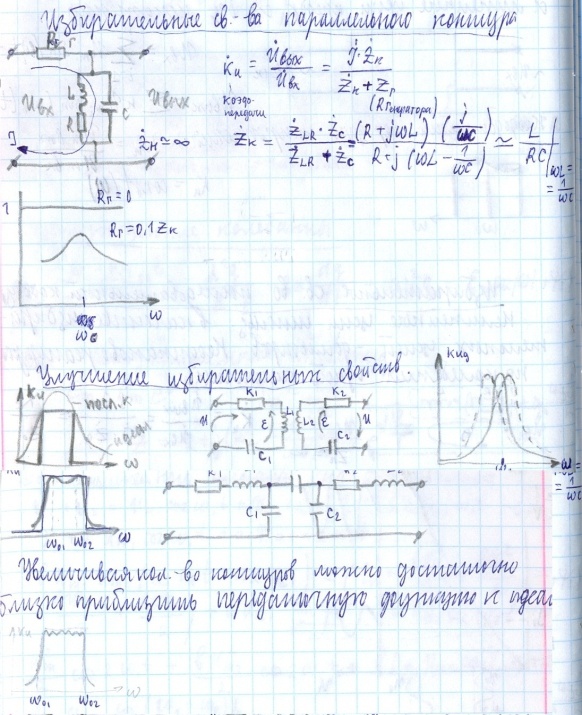 Избирательные св.-ва параллельного контура
Rг
г
L
R
C
Uвх
Uвых
J
Żн ≃ ∞
K̇u = U̇вых / U̇вх = J̇·Żк / (Żк + Zг)
(Rгенератора)
коэф-
передачи
Żк = ŻLR·ŻC / (ŻLR + ŻC) (R + jωL) (j/ωC) / (R + j(ωL - 1/ωC)) ≃ L/RC | ωL = 1/ωC
1
Rг = 0
Rг = 0,1 Zк
ω
ω0
Улучшение избирательных свойств.
Ku
посл. к
идеал
ω
K1
K2
U
ε
L1
L2
ε
U
C1
C2
Kид
ω
Ku
ω01 ω02 ω
= 1/ωC
C1
C2
Увеличивая кол-во контуров можно достаточно
близко приблизить передаточную функцию к идеал
Ku
ω01 ω02 ω